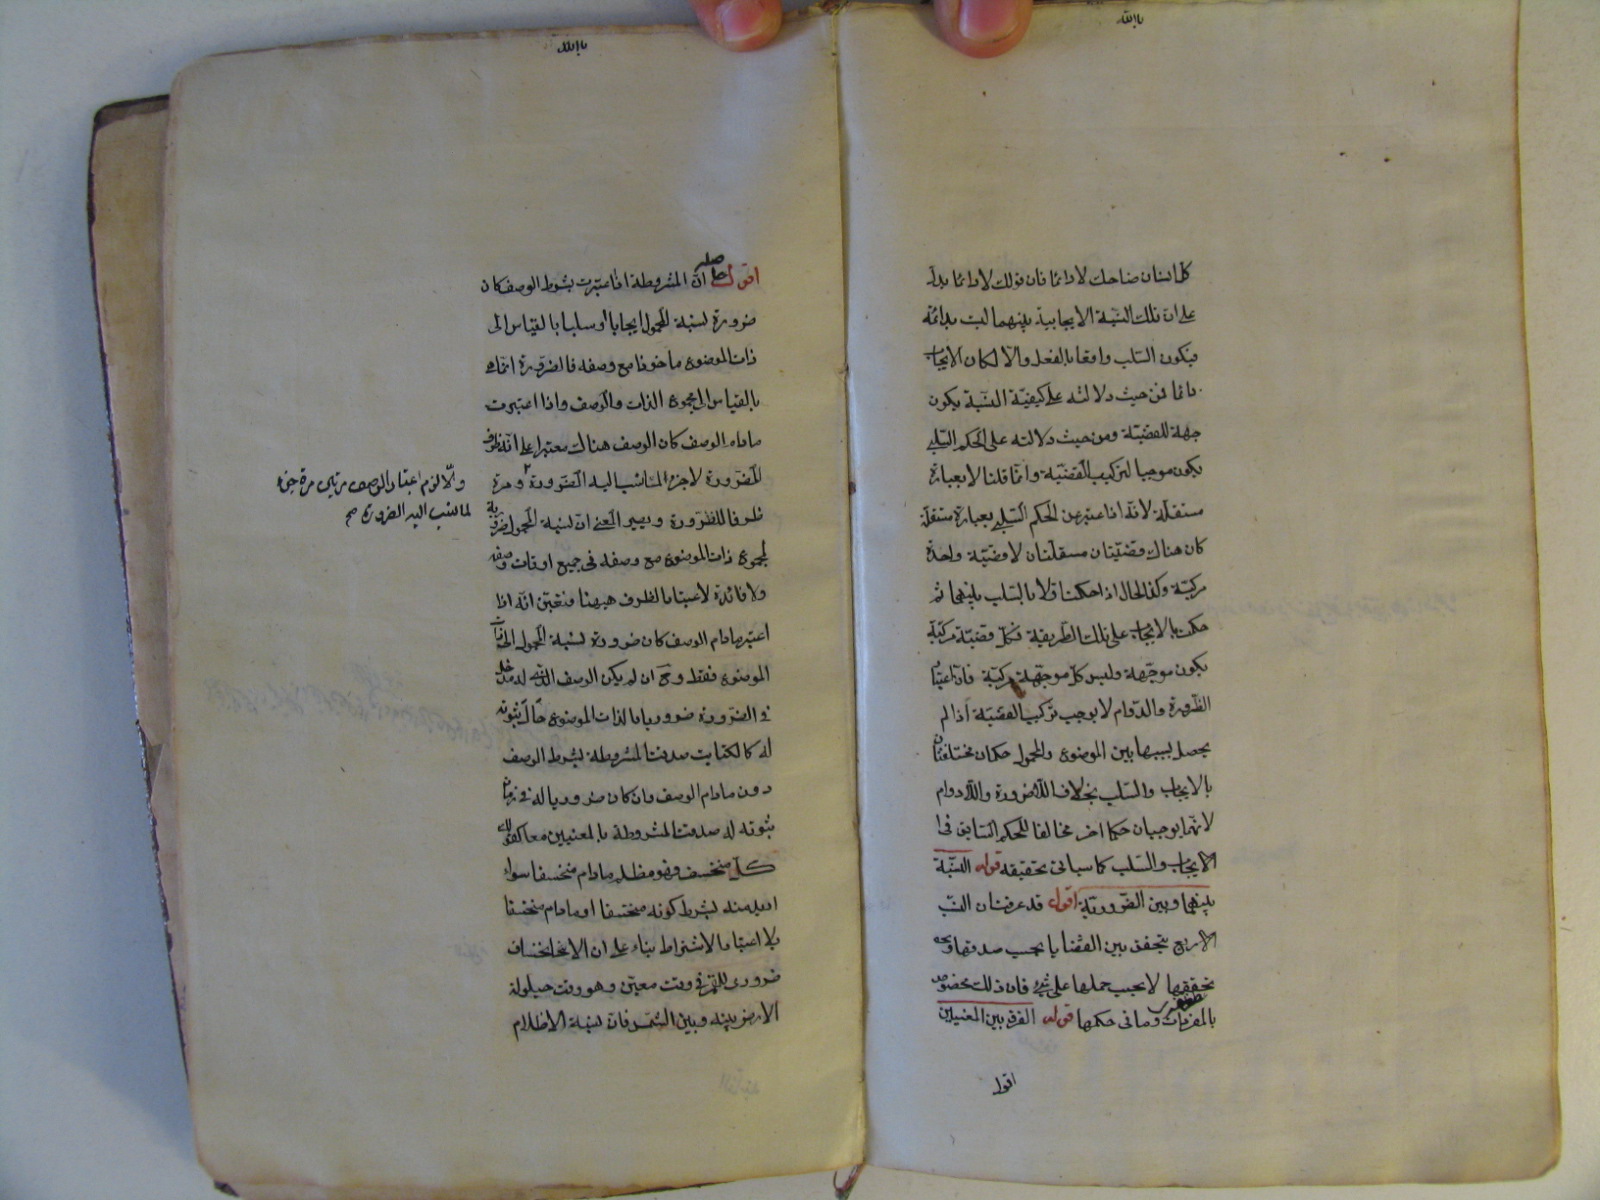 باالله
كل انسان ضاحك لا دائما فان قولك لا دائما يدل
على ان تلك النسبة الايجابية بينهما ليست بدائمة
فيكون السلب واقعا بالفعل والا لكان الايجاب
دائما فمن حيث دلالته على كيفية النسبة يكون
جهة للقضية ومن حيث دلالته على الحكم السلبى
يكون موجبا لتركيب القضية وانما قلنا لا بعبارة
مستقلة لانه اذا عبر عن الحكم السلبى بعبارة مستقلة
كان هناك قضيتان مستقلتان لا قضية واحدة
مركبة وكذا الحال اذا حكمنا اولا بالسلب بينهما ثم
حكمت بالايجاب على تلك الطريقة فكل قضية مركبة
يكون موجهة وليس كل موجهة مركبة فان اعتبار
الضرورة والدوام لا يوجب تركيب القضية اذا لم
يحصل بسببها بين الموضوع والمحمول حكمان مختلفتان
بالايجاب والسلب بخلاف اللاضرورة واللادوام
لانهما يوجبان حكما اخر مخالفا للحكم السابق فى
الايجاب والسلب كما سياتى تحقيقه قوله النسبة
بينهما وبين الضرورية اقول قد عرفت ان النسب
الاربع يتحقق بين القضايا بحسب صدقها و
تحققها لا بحسب حملها على شئ فان ذلك مخصوص
بالمفردات وما فى حكمها قوله الفرق بين المعنيين
اقول
باالله
اقول حاصله ان المشروطة اذا اعتبرت بشرط الوصف كان
ضرورة نسبة المحمول ايجابا او سلبا بالقياس الى
ذات الموضوع ماخوذا مع وصفه فالضرورة انما هى
بالقياس الى مجموع الذات والوصف واذا اعتبرت
مادام الوصف كان الوصف هناك معتبرا على انه ظرف
للضرورة لا جزء المنسب اليه الضرورة ومرة
ظرفا للضرورة ويصير المعنى ان نسبة المحمول ضرورية
لمجموع ذات الموضوع مع وصفه فى جميع اوقات وصفه
ولا فائدة لاعتبار الظرف هيهنا فتعين انه اذا
اعتبر مادام الوصف كان ضرورة نسبة المحمول الى ذات
الموضوع فقط وح ان لم يكن الوصف الذى له مدخل
فى الضرورة ضروريا لذات الموضوع حال ثبوته
له كالكتابة صدقت المشروطة بشرط الوصف
دون مادام الوصف وان كان ضروريا له فى زمان
ثبوته له صدقت المشروطة بالمعنيين معا كقولك
كل منخسف فهو مظلم مادام منخسفا سواء
اريد منه بشرط كونه منخسفا او مادام منخسفا
بلا اعتبار الاشتراط بناء على ان الانخسـاف
ضرورى للقمر فى وقت معين وهو وقت حيلولة
الارض بينه وبين الشمس فان نسبة الاظلام
والا لزم اعتبار الوصف مرتين مرة جزء
لما نسب اليه الضرورة صح